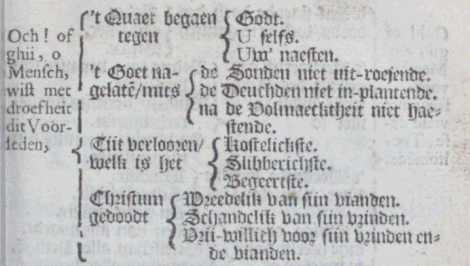 Och! of
ghii, o
Mensch,
wist met
droefheit
dit Voor-
leden,
't Quaet begaen
tegen
Godt.
U selfs.
Uw' naesten.
't Goet na-
gelatē/mits
de Sonden niet uit-roejende.
de Deuchden niet in-plantende.
na de Volmaecktheit niet hae-
stende.
Tiit verlooren/
welk is het
Kostelickste.
Slibberichste.
Begeertste.
Christum
gedoodt
Wreedelik van siin vianden.
Schandelik van siin vrinden.
Vrii-willich voor siin vrinden en-
de vianden.